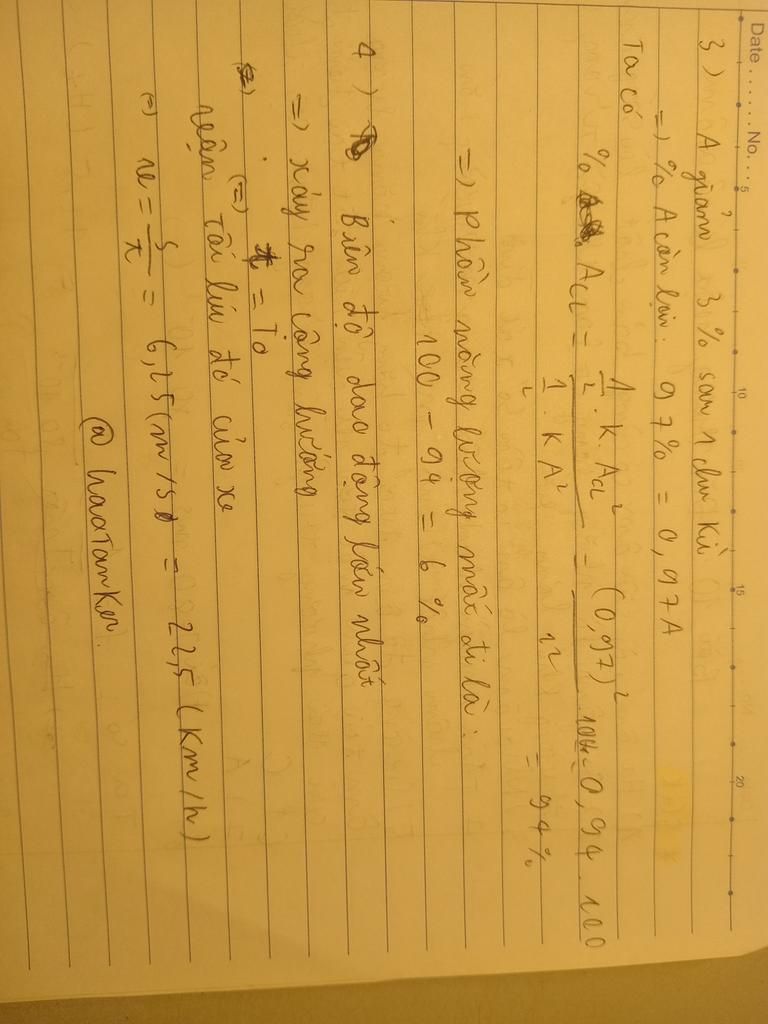 Date ...... No. ...
5 10 15 20
3) A giảm 3% sau 1 chu kì
=) % A còn lại: 97% = 0,97A
Ta có
% ACL = 1/2 . K. ACL² / 1/2 . K A² = (0,97)² / 1² . 100 = 0,94 . 100
= 94%
=) Phần năng lượng mất đi là:
100 - 94 = 6%
4) Biên độ dao động lớn nhất
=) xảy ra cộng hưởng
(=) t = To
vận tốc lúc đó của xe
(=) v = s/t = 6,25 (m/s) = 22,5 (Km/h)
@haoTanKer.